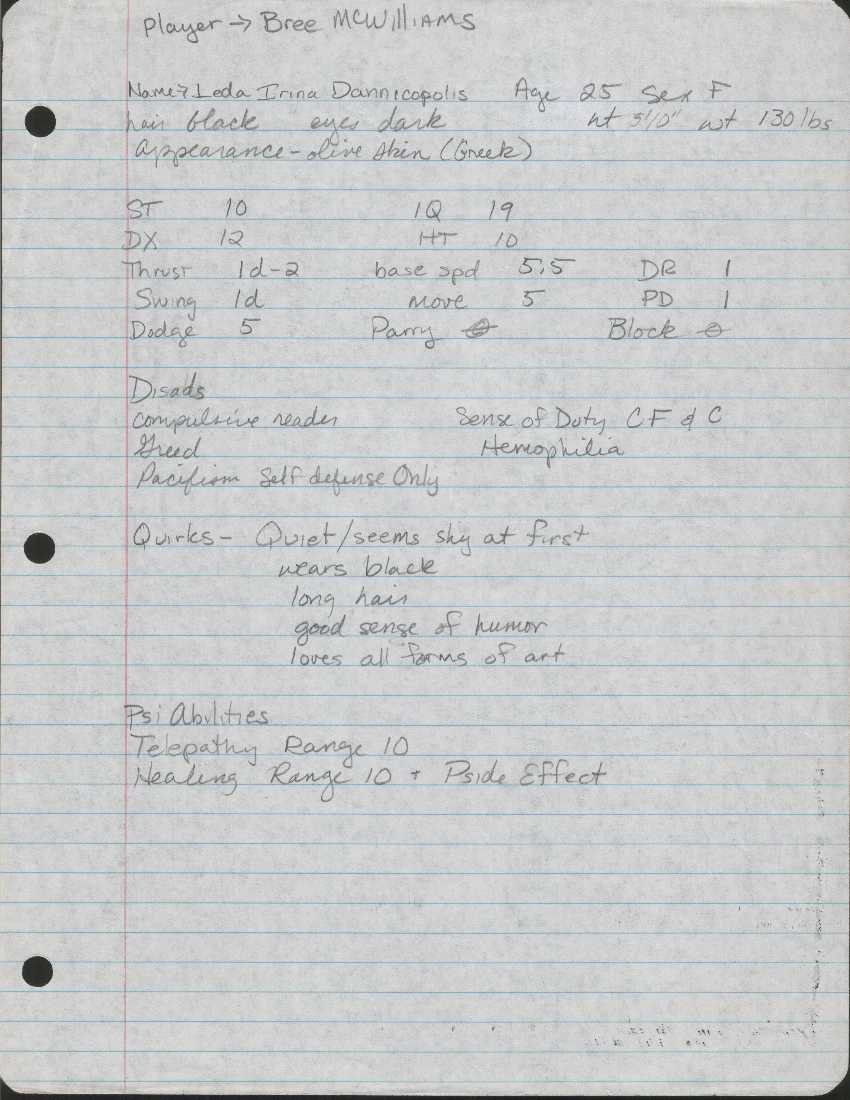 Player → Bree McWilliams
Name → Leda Irina Dannicopolis Age 25 Sex F
hair black eyes dark ht 5'10" wt 130 lbs
Appearance - olive skin (Greek)
ST 10 IQ 19
DX 12 HT 10
Thrust 1d-2 base spd 5.5 DR 1
Swing 1d move 5 PD 1
Dodge 5 Parry 0 Block 0
Disads
compulsive reader Sense of Duty CF & C
Greed Hemophilia
Pacifism Self defense Only
Quirks - Quiet/seems shy at first
wears black
long hair
good sense of humor
loves all forms of art
Psi Abilities
Telepathy Range 10
Healing Range 10 + Pside Effect